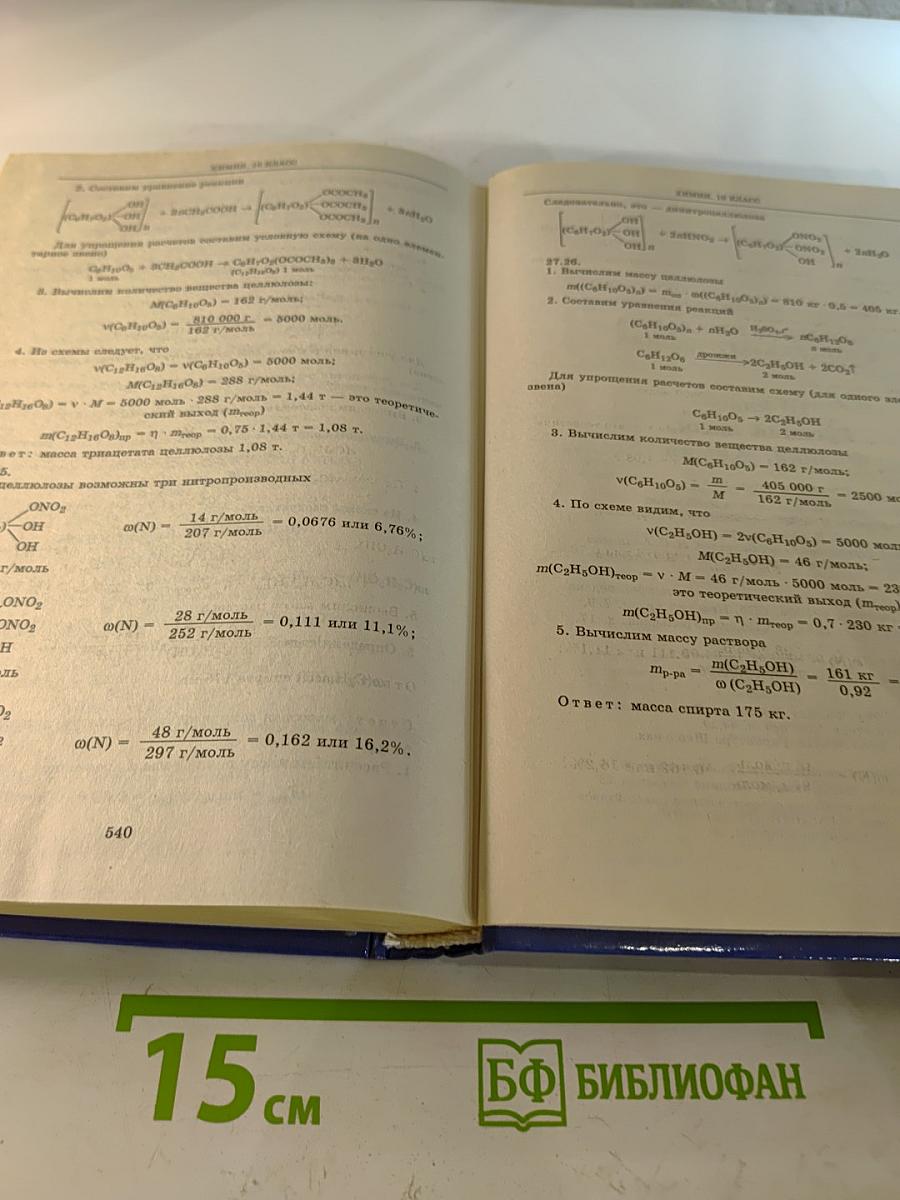 ХИМИЯ. 10 КЛАСС
2. Составим уравнение реакции
[(C₆H₇O₂) OH OH OH]n + 3nCH₃COOH → [(C₆H₇O₂) OCOCH₃ OCOCH₃ OCOCH₃]n + 3nH₂O
Для упрощения расчетов составим условную схему (на одно элемен-
тарное звено)
C₆H₁₀O₅ + 3CH₃COOH → C₆H₇O₂(OCOCH₃)₃ + 3H₂O
1 моль (C₁₂H₁₆O₈) 1 моль
3. Вычислим количество вещества целлюлозы:
M(C₆H₁₀O₅) = 162 г/моль;
ν(C₆H₁₀O₅) = 810 000 г / 162 г/моль = 5000 моль.
4. Из схемы следует, что
ν(C₁₂H₁₆O₈) = ν(C₆H₁₀O₅) = 5000 моль;
M(C₁₂H₁₆O₈) = 288 г/моль;
₁₂H₁₆O₈) = ν · M = 5000 моль · 288 г/моль = 1,44 т — это теоретиче-
ский выход (mтеор)
m(C₁₂H₁₆O₈)пр = η · mтеор = 0,75 · 1,44 т = 1,08 т.
вет: масса триацетата целлюлозы 1,08 т.
5.
целлюлозы возможны три нитропроизводных
ONO₂
) OH
OH
ω(N) = 14 г/моль / 207 г/моль = 0,0676 или 6,76%;
г/моль
ONO₂
ONO₂
H
ω(N) = 28 г/моль / 252 г/моль = 0,111 или 11,1%;
ль
O₂
₂
ω(N) = 48 г/моль / 297 г/моль = 0,162 или 16,2%.
540
ХИМИЯ. 10 КЛАСС
Следовательно, это — динитроцеллюлоза
[(C₆H₇O₂) OH OH OH]n + 2nHNO₃ → [(C₆H₇O₂) ONO₂ ONO₂ OH]n + 2nH₂O
27.26.
1. Вычислим массу целлюлозы
m((C₆H₁₀O₅)n) = · ω((C₆H₁₀O₅)n) = 810 кг · 0,5 = 405 кг.
2. Составим уравнения реакций
(C₆H₁₀O₅)n + nH₂O H₂SO₄, t° → nC₆H₁₂O₆
1 моль n моль
C₆H₁₂O₆ дрожжи → 2C₂H₅OH + 2CO₂↑
1 моль 2 моль
Для упрощения расчетов составим схему (для одного эле
звена)
C₆H₁₀O₅ → 2C₂H₅OH
1 моль 2 моль
3. Вычислим количество вещества целлюлозы
M(C₆H₁₀O₅) = 162 г/моль;
ν(C₆H₁₀O₅) = m / M = 405 000 г / 162 г/моль = 2500 мо
4. По схеме видим, что
ν(C₂H₅OH) = 2ν(C₆H₁₀O₅) = 5000 мол
M(C₂H₅OH) = 46 г/моль;
m(C₂H₅OH)теор = ν · M = 46 г/моль · 5000 моль = 23
это теоретический выход (mтеор)
m(C₂H₅OH)пр = η · mтеор = 0,7 · 230 кг =
5. Вычислим массу раствора
mр-ра = m(C₂H₅OH) / ω (C₂H₅OH) = 161 кг / 0,92 =
Ответ: масса спирта 175 кг.
15 см
БФ БИБЛИОФАН